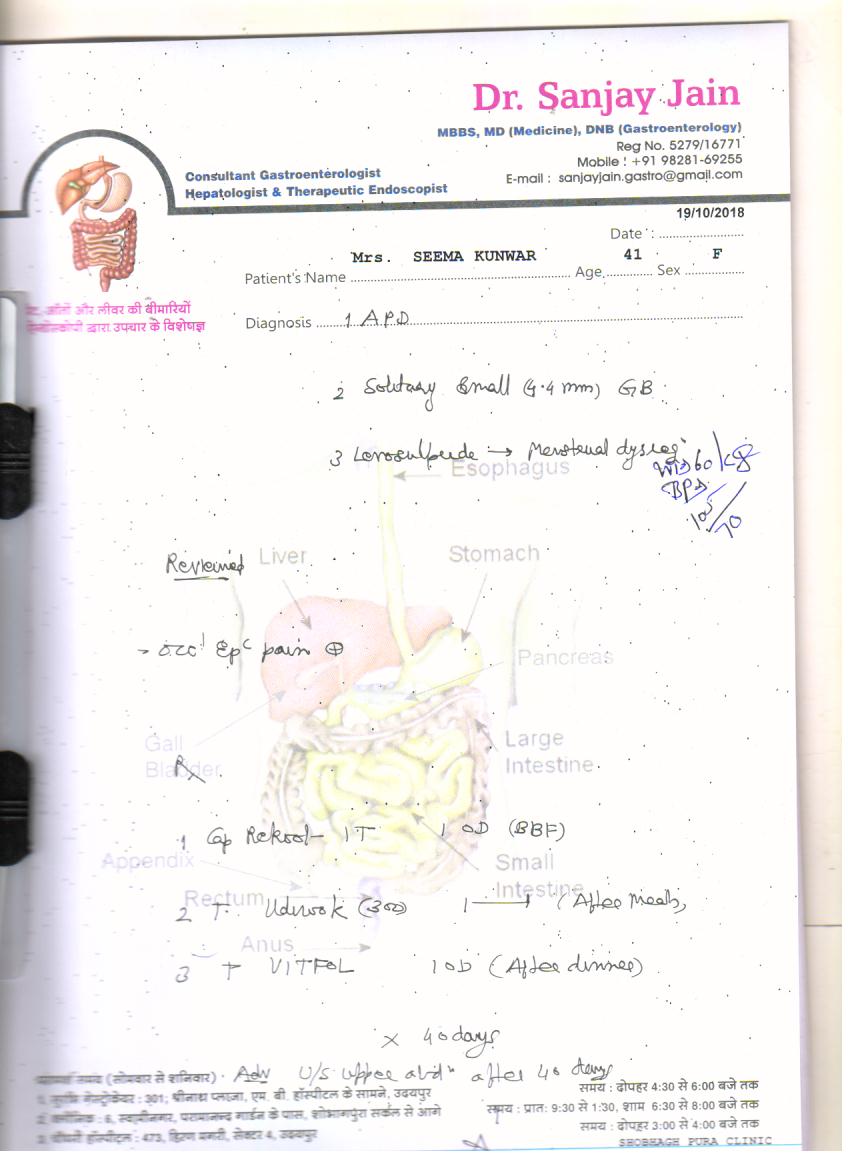 Dr. Sanjay Jain
MBBS, MD (Medicine), DNB (Gastroenterology)
Reg No. 5279/16771
Mobile : +91 98281-69255
E-mail : sanjayjain.gastro@gmail.com
Consultant Gastroenterologist
Hepatologist & Therapeutic Endoscopist
19/10/2018
Date :
Patient's Name Mrs. SEEMA KUNWAR Age 41 Sex F
पेट, आँतों और लीवर की बीमारियों
एन्डोस्कोपी द्वारा उपचार के विशेषज्ञ
Diagnosis 1 APD
2 Solitary Small (4.4 mm) GB
3 Levosulpiride → Menstrual dysreg
Wt 60 kg
BP
100/70
Esophagus
Reviewed
Liver
Stomach
- occl Epc pain ⊕
Pancreas
Gall
Bladder
Large
Intestine
Rx
1 Cap Rekool- IT 1 OD (BBF)
Appendix
Small
Intestine
Rectum
2 T. (300) 1——1 (After meals)
Anus
3 T VITFOL 1 OD (After dinner)
x 40 days
Adv U/S upper abdn after 40 days
परामर्श समय (सोमवार से शनिवार)
301, श्रीनाथ प्लाजा, एम. बी. हॉस्पीटल के सामने, उदयपुर
समय : दोपहर 4:30 से 6:00 बजे तक
2. क्लीनिक : 6, स्वामीनगर, परमानन्द गार्डन के पास, शोभागपुरा सर्कल से आगे
समय : प्रात: 9:30 से 1:30, शाम 6:30 से 8:00 बजे तक
3. चौधरी हॉस्पीटल : 473, हिरण मगरी, सेक्टर 4, उदयपुर
समय : दोपहर 3:00 से 4:00 बजे तक
SHOBHAGH PURA CLINIC